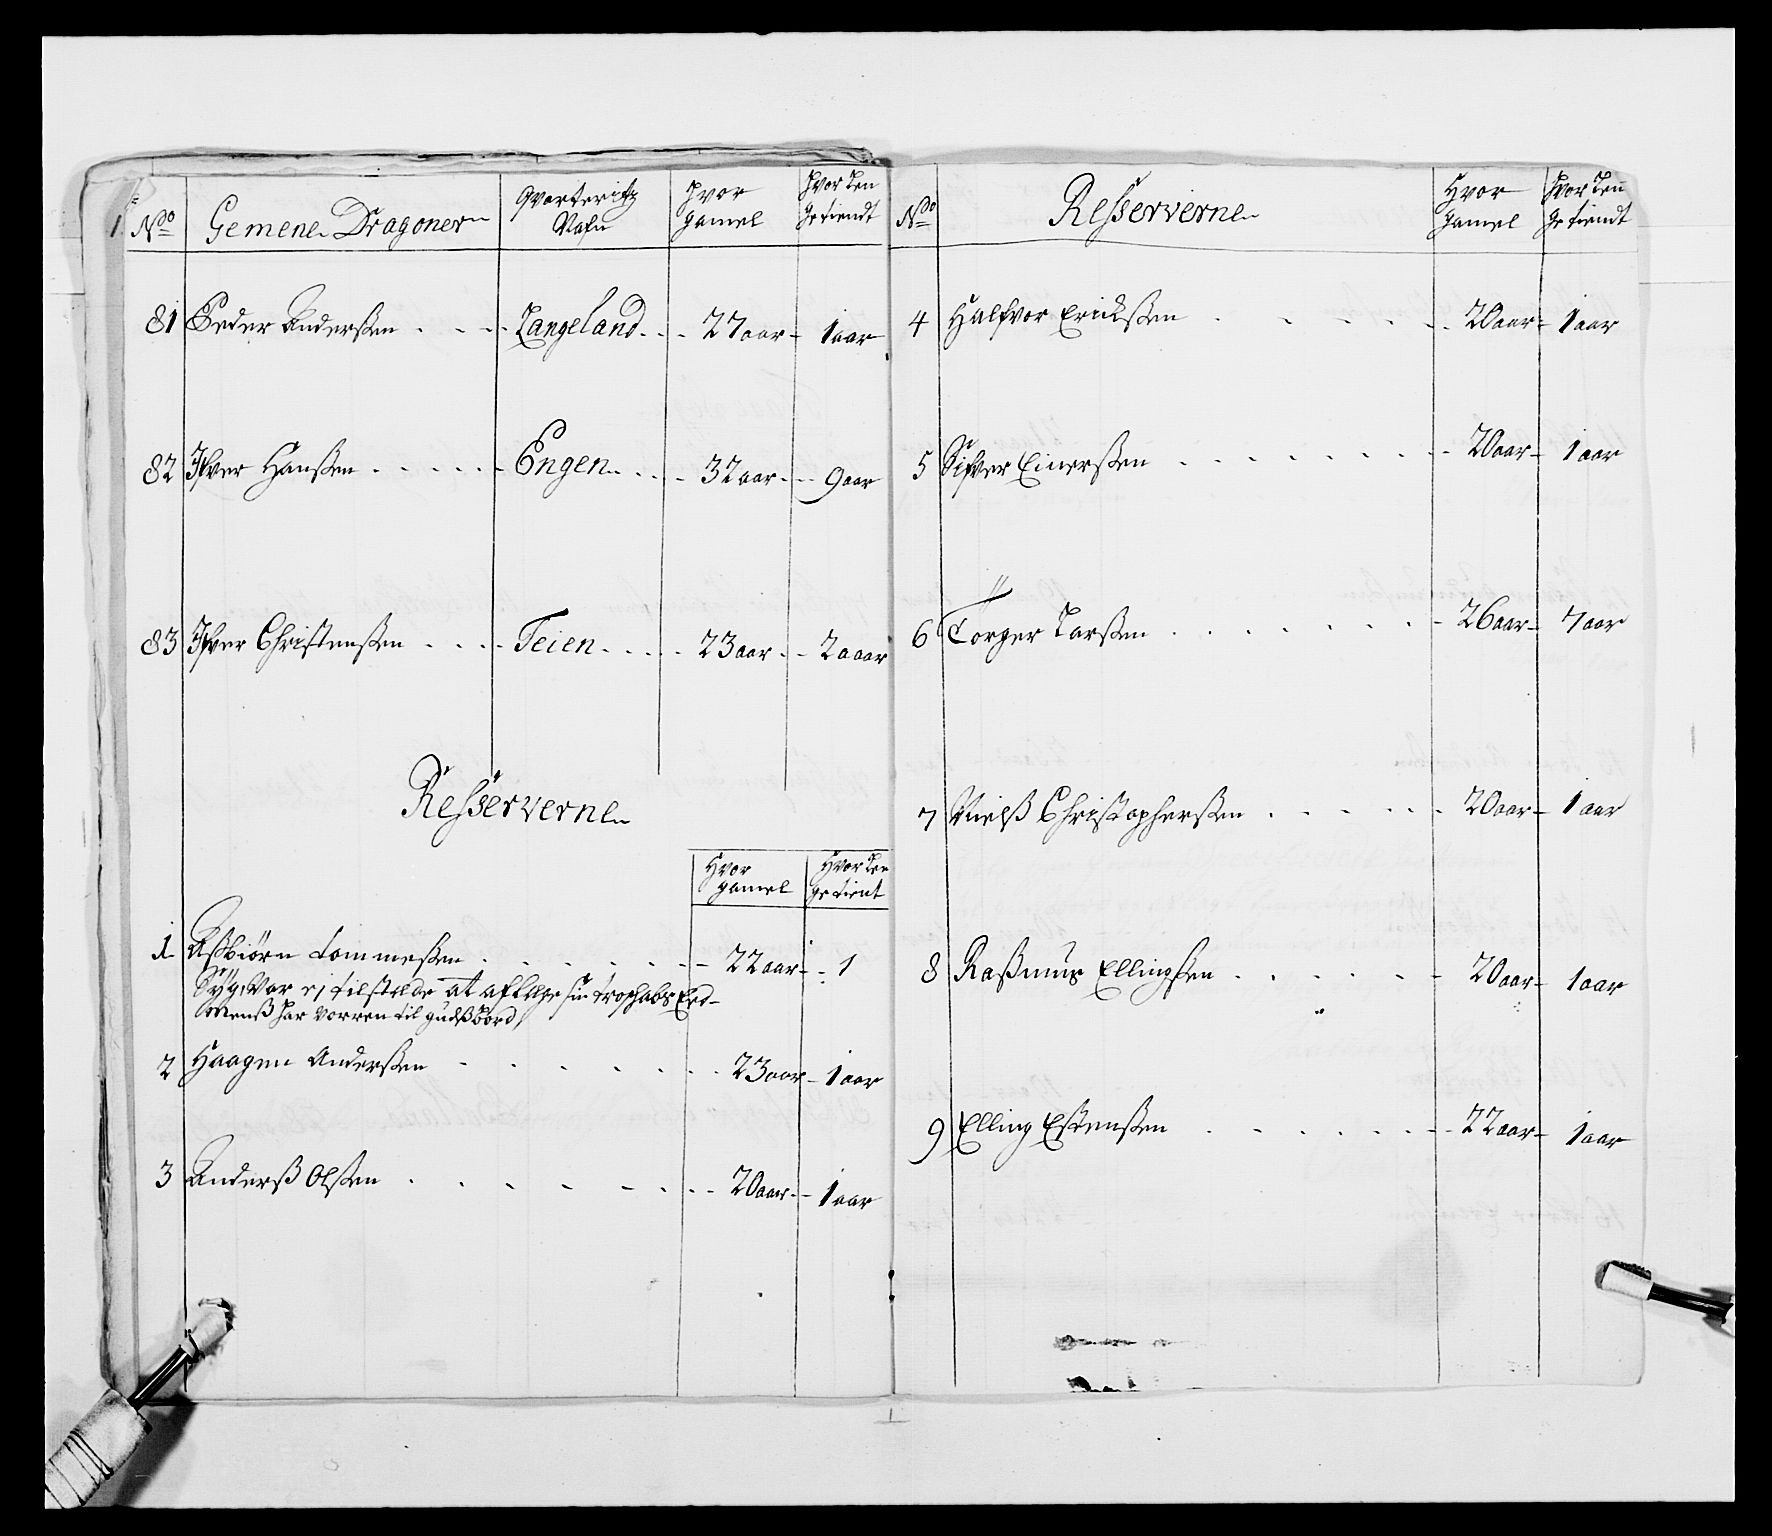 No Gemene Dragoner Qvarteritz Nafn Hvor gamel Hvor Len getiendt
81 Peder Anderßen Langeland 27 aar 1 aar
82 Ifver Hanßen Engen 32 aar 9 aar
83 Ifver Christenßen Teien 23 aar 2 aaar
Resserverne
Hvor gamel Hvor Len getient
1 Aßbiörn Tommeßen 22 aar 1
Syg, Var ej tilstede at aflegge sin
Menß har Vorren til gudß bord,
2 Haagen Anderßen 23 aar 1 aar
3 Anderß Olßen 20 aar 1 aar
No Resserverne Hvor gamel Hvor Len getiendt
4 Halfvor Erickßen 20 aar 1 aar
5 Sifver Einerßen 20 aar 1 aar
6 Torger Larßen 26 aar 7 aar
7 Nielß Christopherßen 20 aar 1 aar
8 Raßmus Ellingßen 20 aar 1 aar
9 Elling Estenßen 22 aar 1 aar